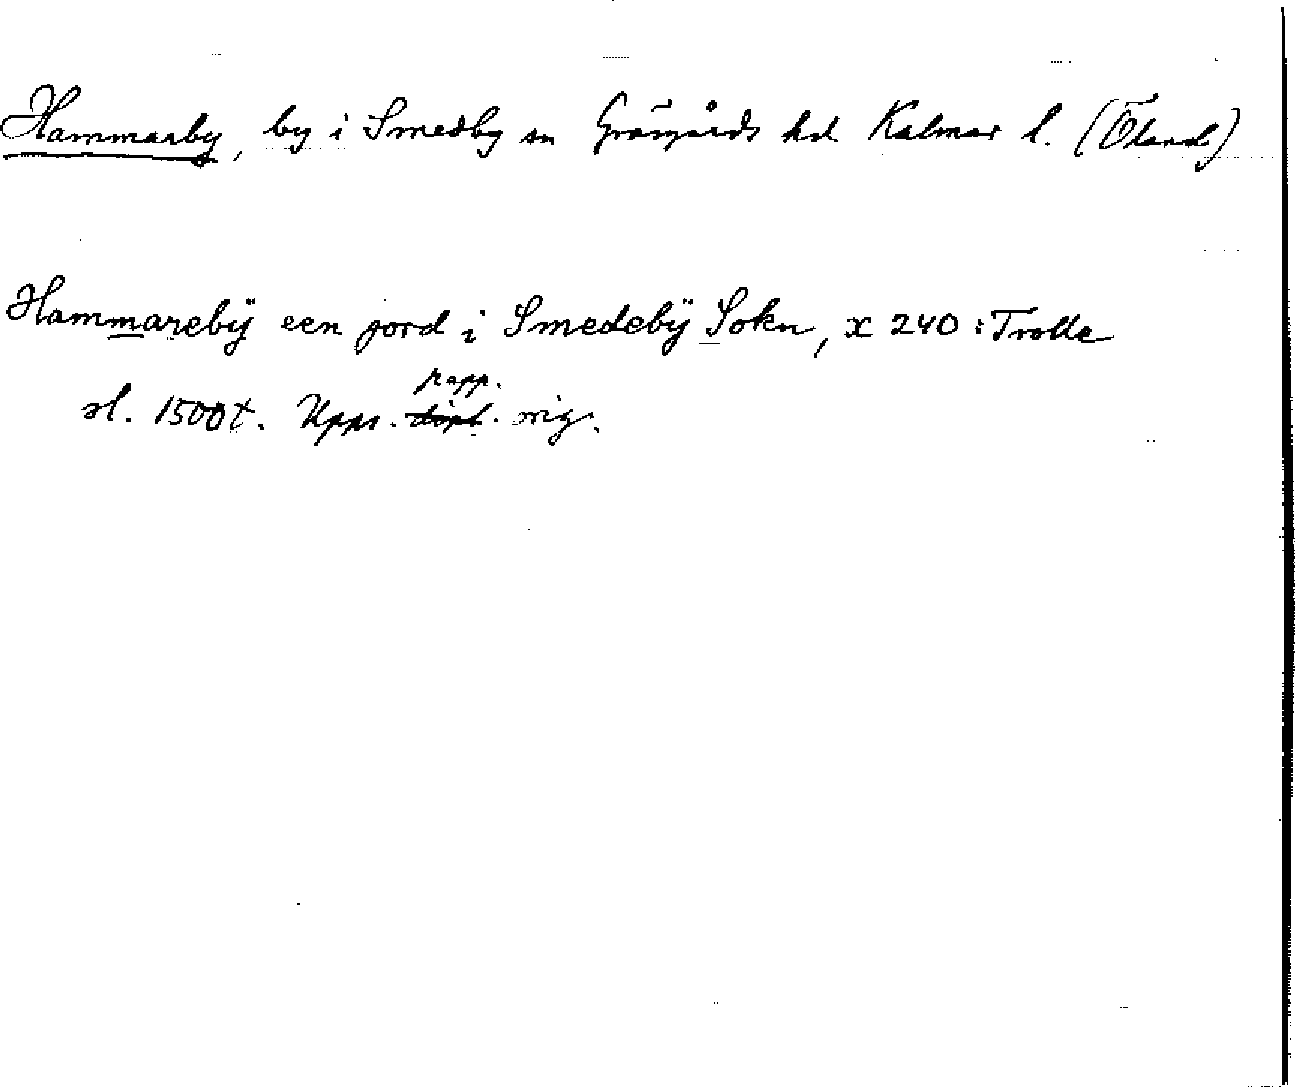 Hammarby, by i Smedby sn Gräsgårds hd Kalmar l. (Öland)
Hammarebÿ een jord i Smedebÿ Sokn, x 240 : Trolle
sl. 1500t. Upps. papp. orig.